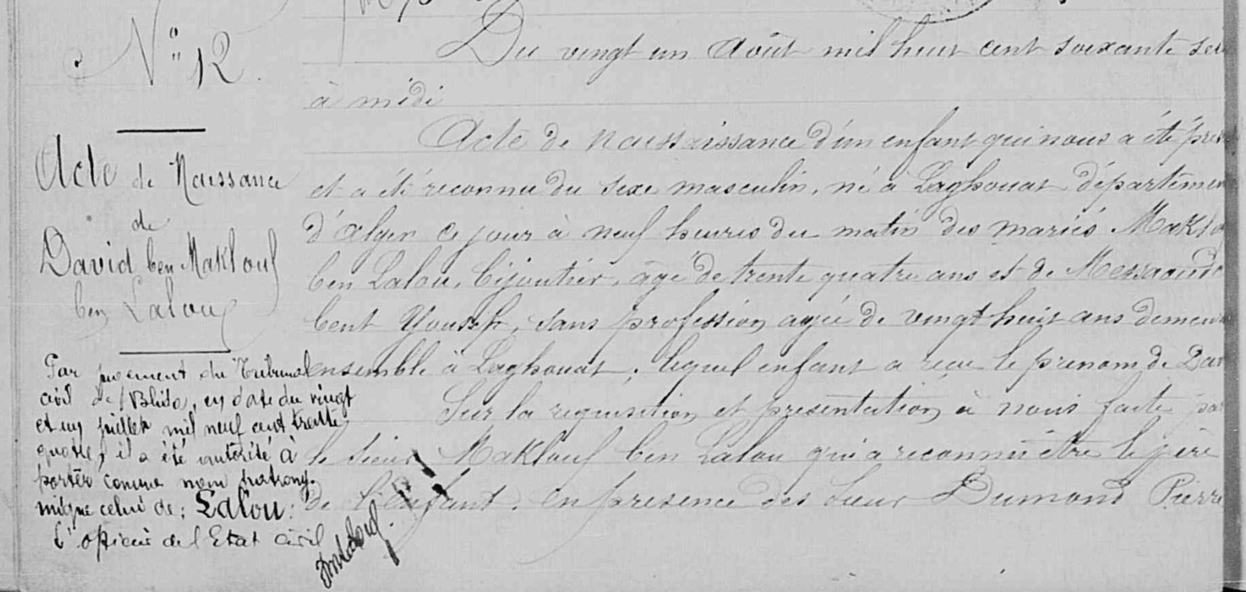 N° 12.
Acte de Naissance
de
David ben Maklouf
ben Lalou
Par jugement du Tribunal
civil de Blida, en date du vingt
et un juillet mil neuf cent trente
quatre, il a été autorisé à
porter comme nom patrony-
mique celui de: Lalou.
L'officier de l'Etat civil
Du vingt un Août mil huit cent soixante
à midi
Acte de naissaissance d'un enfant qui nous a été
et a été reconnu du sexe masculin, né à Laghouat département
d'Alger ce jour à neuf heures du matin des mariés
ben Lalou, bijoutier, agé de trente quatre ans et de
bent Youseph, sans profession agée de vingt huit ans
ensemble à Laghouat; lequel enfant a reçu le prenom de
Sur la requisition et presentation à nous faite par
le sieur Maklouf ben Lalou qui a reconnu être le père
de l'enfant. en presence des sieur Dumond Pierre